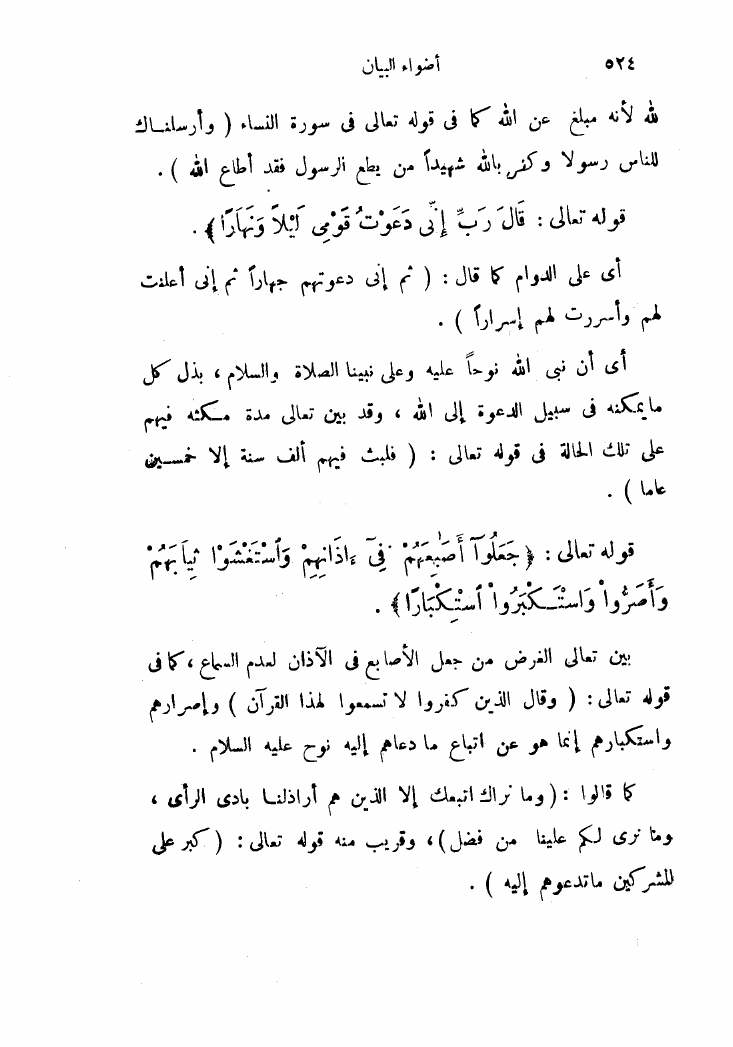 ٥٢٤ أضواء البيان
لله لأنه مبلغ عن الله كما فى قوله تعالى فى سورة النساء ( وأرسلناك
للناس رسولا وكفى بالله شهيداً من يطع الرسول فقد أطاع الله ) .
قوله تعالى : قَالَ رَبِّ إِنِّى دَعَوْتُ قَوْمِى لَيْلًا وَنَهَارًا ﴾ .
أى على الدوام كما قال : ( ثم إنى دعوتهم جهاراً ثم إنى أعلنت
لهم وأسررت لهم إسراراً ) .
أى أن نبى الله نوحاً عليه وعلى نبينا الصلاة والسلام ، بذل كل
مايمكنه فى سبيل الدعوة إلى الله ، وقد بين تعالى مدة مكثه فيهم
على تلك الحالة فى قوله تعالى : ( فلبث فيهم ألف سنة إلا خمسين
عاما ) .
قوله تعالى : ﴿ جَعَلُوٓا۟ أَصَٰبِعَهُمْ فِىٓ ءَاذَانِهِمْ وَٱسْتَغْشَوْا۟ ثِيَابَهُمْ
وَأَصَرُّوا۟ وَٱسْتَكْبَرُوا۟ ٱسْتِكْبَارًا ﴾ .
بين تعالى الغرض من جعل الأصابع فى الآذان لعدم السماع ، كما فى
قوله تعالى : ( وقال الذين كفروا لا تسمعوا لهذا القرآن ) وإصرارهم
واستكبارهم إنما هو عن اتباع ما دعاهم إليه نوح عليه السلام .
كما قالوا : ( وما نراك اتبعك إلا الذين هم أراذلنا بادى الرأى ،
وما نرى لكم علينا من فضل ) ، وقريب منه قوله تعالى : ( كبر على
المشركين ماتدعوهم إليه ) .